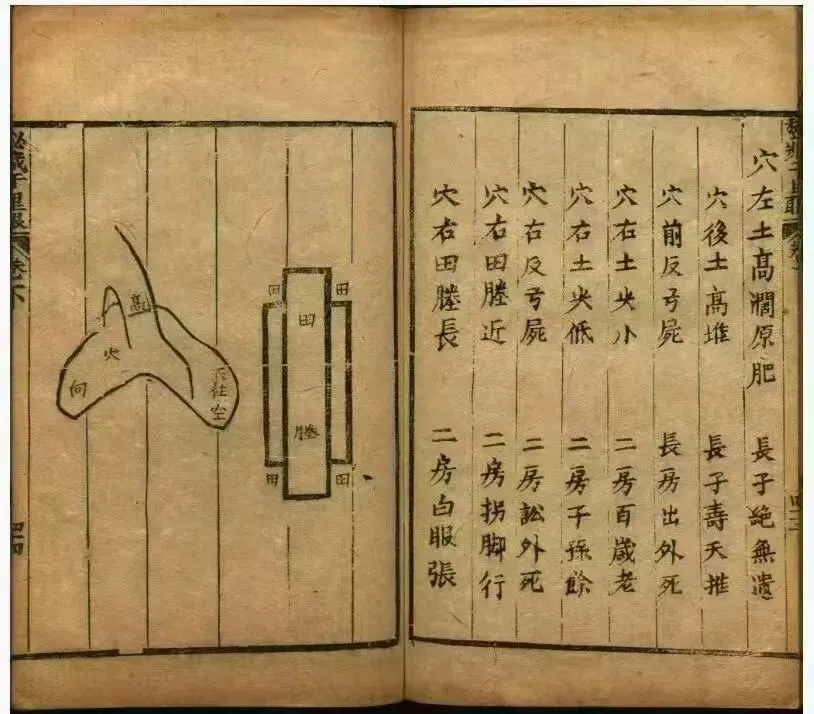 穴左土髙濶原肥 長子絶無遺
穴後土髙堆 長子壽夭推
穴前反弓屍 長房出外死
穴右土尖小 二房百歲老
穴右土尖低 二房子孫餘
穴右反弓屍 二房訟外死
穴右田塍近 二房拐脚行
穴右田塍長 二房白服張
田
田塍
田
田
田
髙
穴
向
空
秘藏千里眼